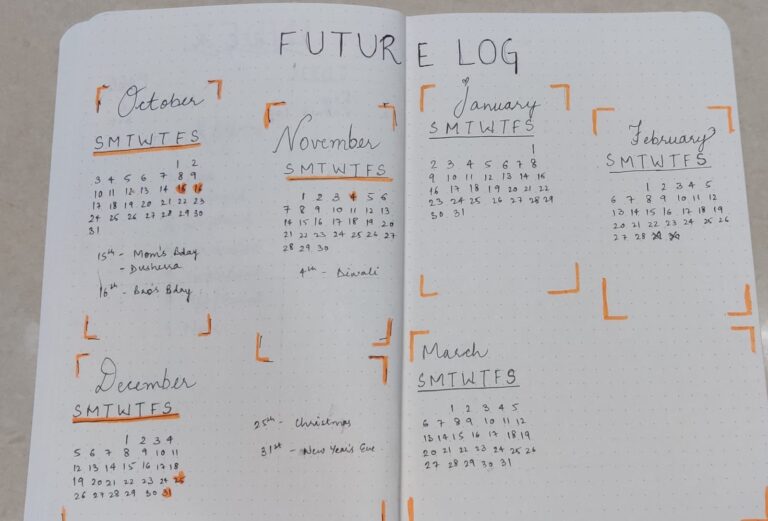 FUTURE LOG
October
S M T W T F S
1 2
3 4 5 6 7 8 9
10 11 12 13 14 15 16
17 18 19 20 21 22 23
24 25 26 27 28 29 30
31
15th - Mom's Bday
- Dusherra
16th - Bro's Bday
November
S M T W T F S
1 2 3 4 5 6
7 8 9 10 11 12 13
14 15 16 17 18 19 20
21 22 23 24 25 26 27
28 29 30
4th - Diwali
December
S M T W T F S
1 2 3 4
5 6 7 8 9 10 11
12 13 14 15 16 17 18
19 20 21 22 23 24 25
26 27 28 29 30 31
25th - Christmas
31st - New Year's Eve
January
S M T W T F S
1
2 3 4 5 6 7 8
9 10 11 12 13 14 15
16 17 18 19 20 21 22
23 24 25 26 27 28 29
30 31
February
S M T W T F S
1 2 3 4 5
6 7 8 9 10 11 12
13 14 15 16 17 18 19
20 21 22 23 24 25 26
27 28
March
S M T W T F S
1 2 3 4 5
6 7 8 9 10 11 12
13 14 15 16 17 18 19
20 21 22 23 24 25 26
27 28 29 30 31